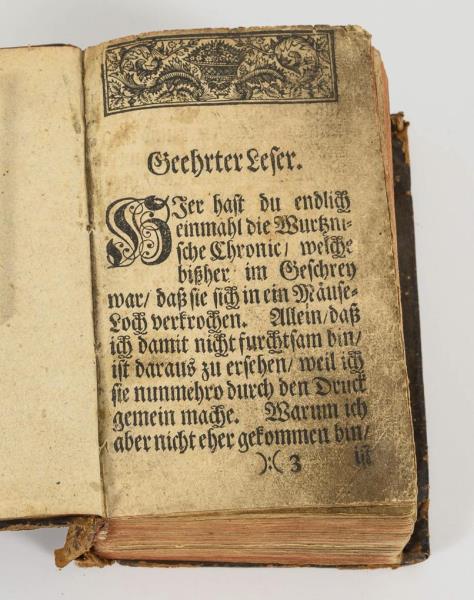 Geehrter Leser.
HJer hast du endlich
einmahl die Wurtzni-
sche Chronic/ welche
bißher im Geschrey
war/ daß sie sich in ein Mäuse-
Loch verkrochen. Allein/ daß
ich damit nicht furchtsam bin/
ist daraus zu ersehen/ weil ich
sie nunmehro durch den Druck
gemein mache. Warum ich
aber nicht eher gekommen bin/
):( 3 ist